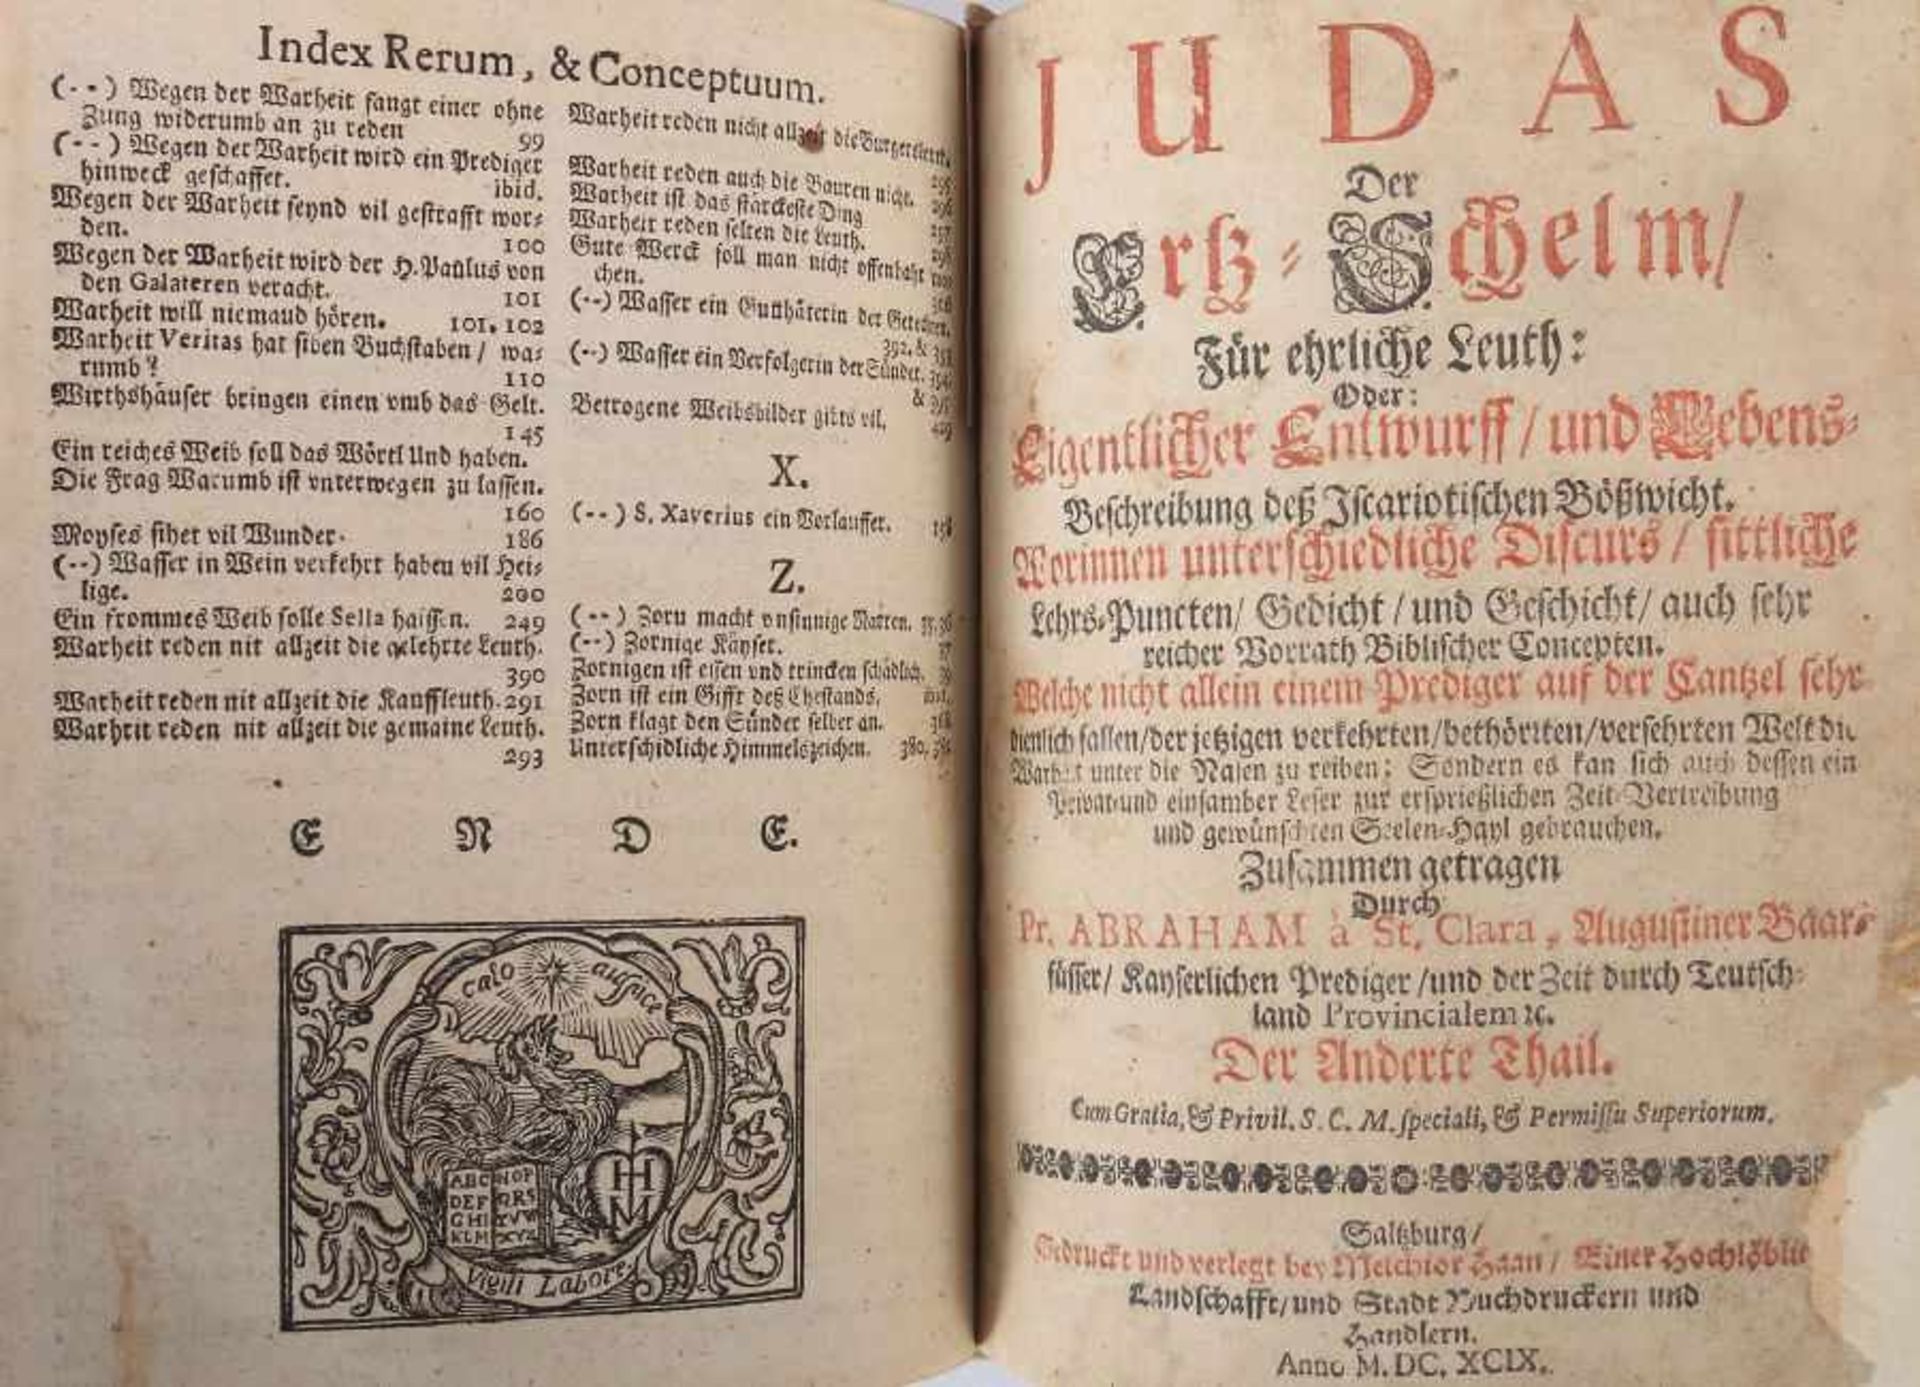 Index Rerum, & Conceptuum.
(--) Wegen der Warheit fangt einer ohne
Zung widerumb an zu reden 99
(--) Wegen der Warheit wird ein Prediger
hinweck geschaffet. ibid.
Wegen der Warheit seynd vil gestrafft wor-
den. 100
Wegen der Warheit wird der H. Paulus von
den Galateren veracht. 101
Warheit will niemaud hören. 101. 102
Warheit Veritas hat siben Buchstaben / wa-
rumb? 110
Wirthshäuser bringen einen vmb das Gelt.
145
Ein reiches Weib soll das Wörtl Und haben.
Die Frag Warumb ist vnterwegen zu lassen.
160
Moyses sihet vil Wunder. 186
(--) Wasser in Wein verkehrt haben vil Hei-
lige. 200
Ein frommes Weib solle Sella haissen. 249
Warheit reden nit allzeit die gelehrte Leuth.
390
Warheit reden nit allzeit die Kauffleuth. 291
Warheit reden nit allzeit die gemaine Leuth.
293
Warheit reden nicht allzeit die
Warheit reden auch die Bauren nicht. 296
Warheit ist das stärckeste Ding 297
Warheit reden selten die Leuth. 298
Gute Werck soll man nicht offenbahr
chen.
(--) Wasser ein Gutthäterin der
392. &
(--) Wasser ein Verfolgerin der Sünder. 394.
&
Betrogene Weibsbilder gibts vil. 429
X.
(--) S. Xaverius ein Vorlauffer. 158
Z.
(--) Zorn macht vnsinnige Narren. 35. 36
(--) Zornige Käyser. 37
Zornigen ist essen vnd trincken schädlich. 39
Zorn ist ein Gifft deß Ehestands. ibid.
Zorn klagt den Sünder selber an. 368
Unterschidliche Himmelszeichen. 380. 381
E N D E.
cælo auspice
ABC NOP
DEF QRS
GHI TVW
KLM XYZ
IHM
Vigili Labore.
JUDAS
Der
Ertz-Schelm/
Für ehrliche Leuth:
Oder:
Eigentlicher Entwurff / und Lebens-
Beschreibung deß Iscariotischen Bößwicht.
Worinnen unterschiedliche Discurs / sittliche
Lehrs-Puncten/ Gedicht / und Geschicht/ auch sehr
reicher Vorrath Biblischer Concepten.
Welche nicht allein einem Prediger auf der Cantzel sehr
dienlich fallen/ der jetzigen verkehrten/ bethöriten/ versehrten Welt die
Warheit unter die Nasen zu reiben: Sondern es kan sich auch dessen ein
Privat- und einsamber Leser zur ersprießlichen Zeit-Vertreibung
und gewünschten Seelen-Hayl gebrauchen.
Zusammen getragen
Durch
Pr. ABRAHAM à St. Clara, Augustiner Baar-
füsser/ Kayserlichen Prediger / und der Zeit durch Teutsch-
land Provincialem ꝛc.
Der Anderte Thail.
Cum Gratia, & Privil. S. C. M. speciali, & Permissu Superiorum.
Saltzburg/
Gedruckt und verlegt bey Melchior Haan / Einer Hochlöblic
Landschafft/ und Stadt Buchdruckern und
Handlern.
Anno M. DC. XCIX.